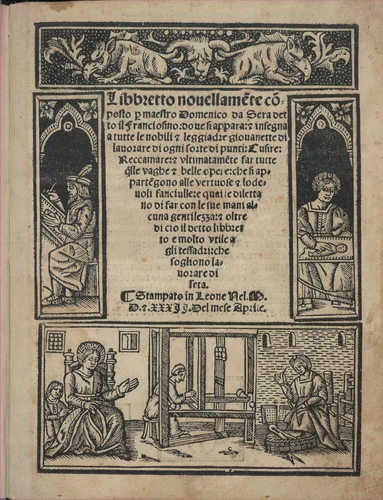 Libbretto novellamēte cō-
posto ꝑ maestro Domenico da Sera det
to il Franciosino: dove si appara ⁊ insegna
a tutte le nobili ⁊ leggiadre giovanette di
lavorare di ogni sorte di punti: Cusire:
Reccamare: ⁊ ultimatamēte far tutte
q̄lle vaghe ⁊ belle opere: che si ap-
partēgono alle vertuose ⁊ lode-
voli fanciulle: ⁊ quai se diletta
no di far con le sue mani al
cuna gentilezza: ⁊ oltre
di cio il detto libbret
to e molto utile a
gli tessadri: che
sogliono la-
vorare di
seta.
¶ Stampato in Leone Nel. M.
D. ⁊. XXXII. Del mese Aprile.